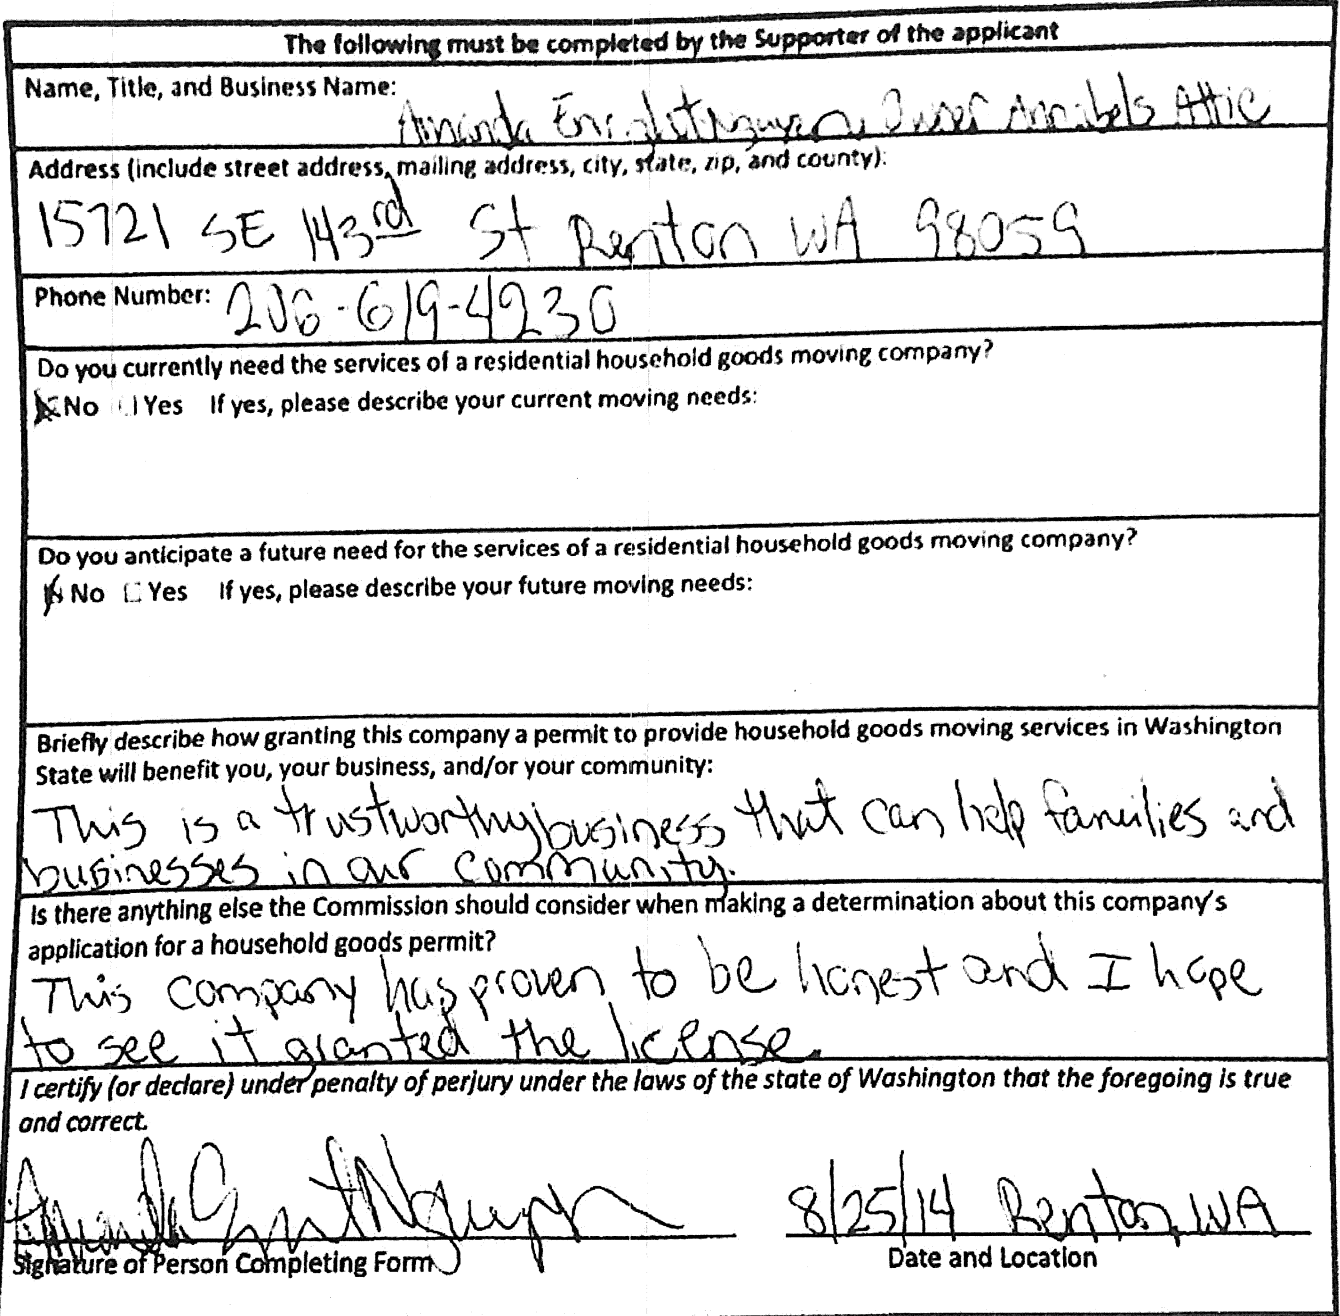 The following must be completed by the Supporter of the applicant
Name, Title, and Business Name:
Amanda Enright Nguyen, Owner Annabels Attic
Address (include street address, mailing address, city, state, zip, and county):
15721 SE 143rd St Renton WA 98059
Phone Number: 206-619-4230
Do you currently need the services of a residential household goods moving company?
No Yes If yes, please describe your current moving needs:
Do you anticipate a future need for the services of a residential household goods moving company?
No Yes If yes, please describe your future moving needs:
Briefly describe how granting this company a permit to provide household goods moving services in Washington
State will benefit you, your business, and/or your community:
This is a trustworthy business that can help families and
businesses in our community.
Is there anything else the Commission should consider when making a determination about this company's
application for a household goods permit?
This company has proven to be honest and I hope
to see it granted the license.
I certify (or declare) under penalty of perjury under the laws of the state of Washington that the foregoing is true
and correct.
Amanda Enright Nguyen 8/25/14 Renton, WA
Signature of Person Completing Form Date and Location